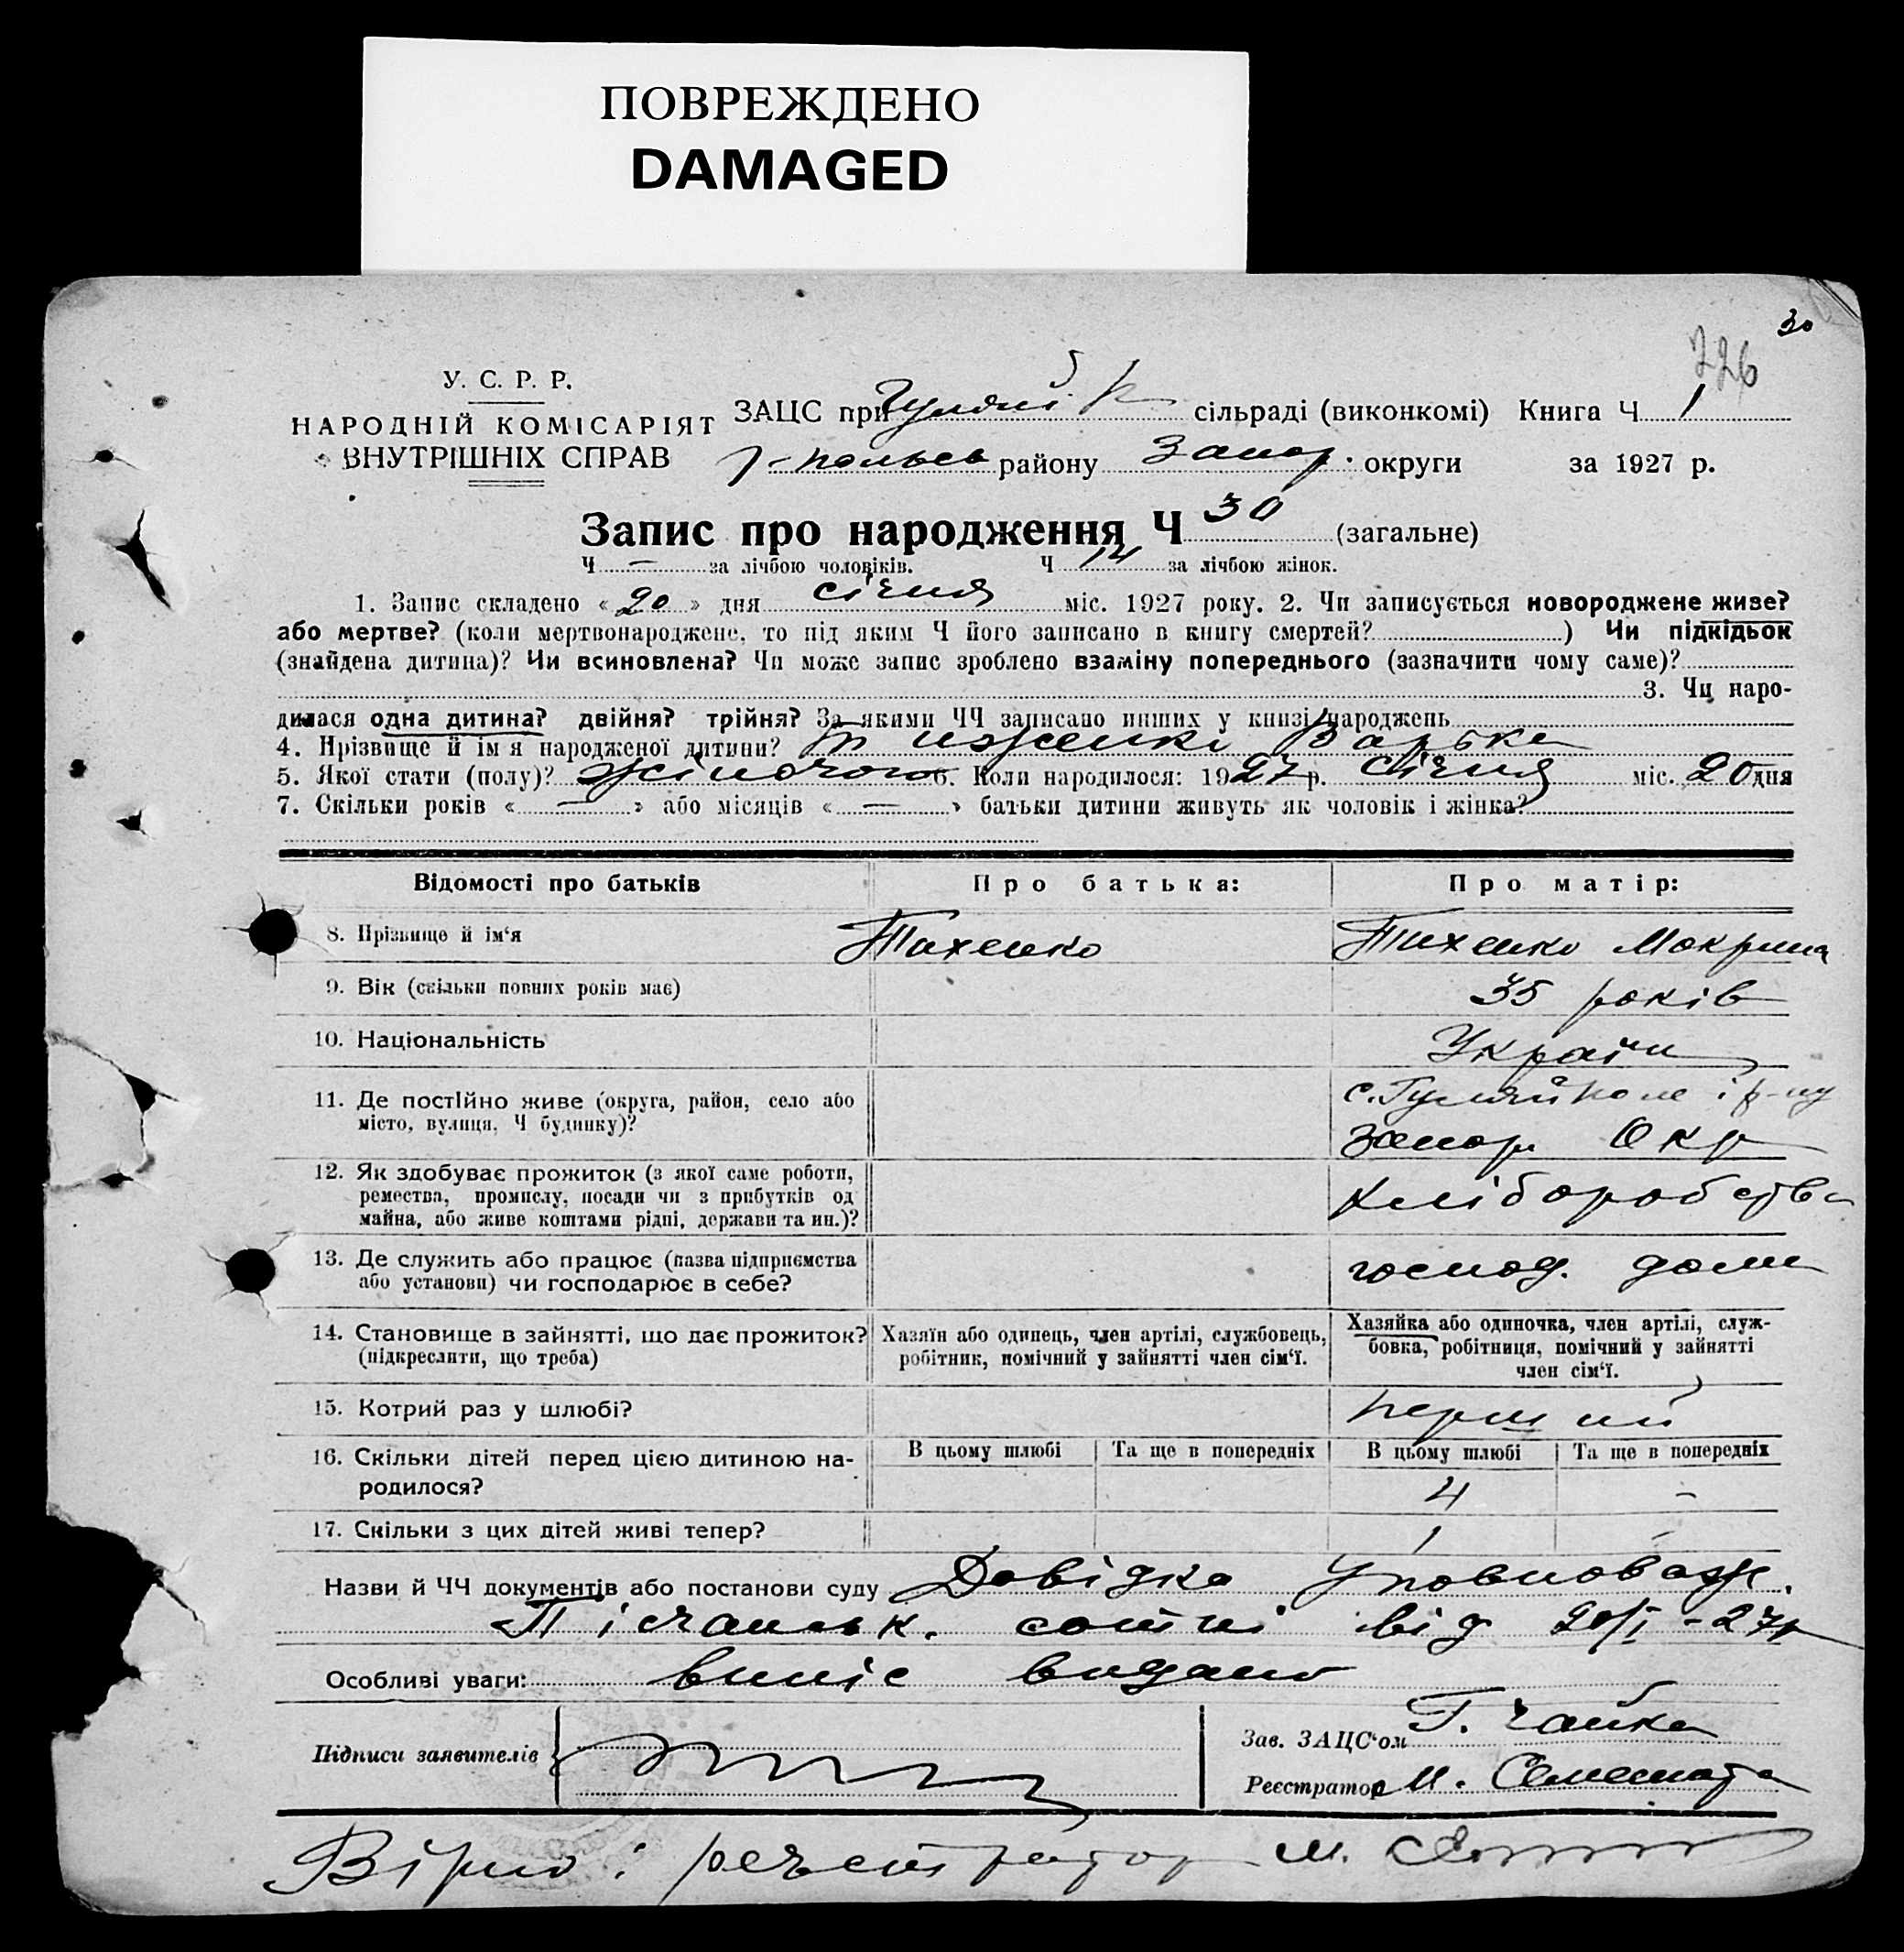 ПОВРЕЖДЕНО
DAMAGED
30
726
У. С. Р. Р.
НАРОДНІЙ КОМІСАРІЯТ
ВНУТРІШНІХ СПРАВ
ЗАЦС при Гуляй сільраді (виконкомі) Книга Ч 1
району Запор. округи за 1927 р.
Запис про народження Ч 30 (загальне)
Ч — за лічбою чоловіків. Ч 14 за лічбою жінок.
1. Запис складено « 20 » дня січня міс. 1927 року. 2. Чи записується новороджене живе?
або мертве? (коли мертвонароджене, то під яким Ч його записано в книгу смертей? ) Чи підкідьок
(знайдена дитина)? Чи всиновлена? Чи може запис зроблено взаміну попереднього (зазначити чому саме)?
3. Чи наро-
дилася одна дитина? двійня? трійня? За якими ЧЧ записано инших у книзі народжень
4. Прізвище й ім я народженої дитини? Варька
5. Якої стати (полу)? жіночого 6. Коли народилося: 1927 р. січня міс. 20 дня
7. Скільки років « — » або місяців « — » батьки дитини живуть як чоловік і жінка?
Відомості про батьків Про батька: Про матір:
8. Прізвище й ім‘я Тихенко Тихенко Мокрина
9. Вік (скільки повних років має) 35 років
10. Національність Україн
11. Де постійно живе (округа, район, село або
місто, вулиця, Ч будинку)? с. Гуляйполе і р-ну
Запор Окр
12. Як здобуває прожиток (з якої саме роботи,
ремества, промислу, посади чи з прибутків од
майна, або живе коштами рідні, держави та ин.)? хліборобства
13. Де служить або працює (назва підприємства
або установи) чи господарює в себе? господ. дома
14. Становище в зайнятті, що дає прожиток?
(підкреслити, що треба)
Хазяїн або одинець, член артілі, службовець,
робітник, помічний у зайнятті член сім‘ї.
Хазяйка або одиночка, член артілі, служ-
бовка, робітниця, помічний у зайнятті
член сім‘ї.
15. Котрий раз у шлюбі? перший
16. Скільки дітей перед цією дитиною на-
родилося?
В цьому шлюбі Та ще в попередніх В цьому шлюбі Та ще в попередніх
4 -
17. Скільки з цих дітей живі тепер? 1 -
Назви й ЧЧ документів або постанови суду Довідка Уповноваж.
Пічанськ. сотні від 20/I - 27р
Особливі уваги: випіс видано
Підписи заявителів
Зав. ЗАЦС‘ом Г. Чайка
Реєстратор М.
Вірно: реєстратор М.